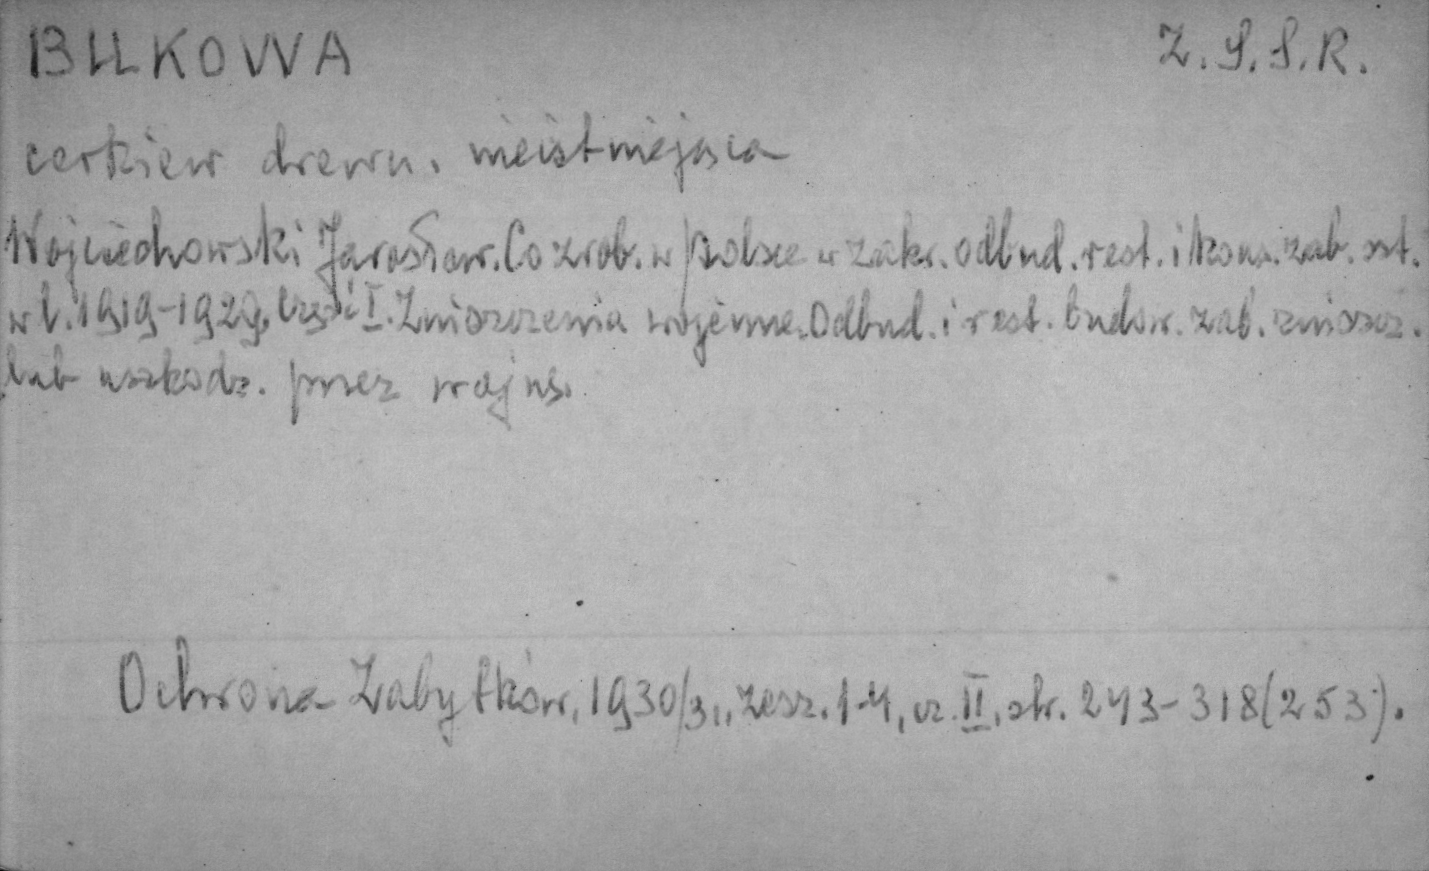 BUKOWA Z.S.S.R.
cerkiew drewn. nieistniejąca
Wojciechowski Jarosław. Co zrob. w Polsce w zakr. odbud. rest. i kons. zab. szt.
w l. 1919-1929. Część I. Zniszczenia wojenne. Odbud. i rest. budow. zab. zniszcz.
lub uszkodz. przez wojnę.
Ochrona Zabytków, 1930/31, zesz. 1-4, cz. II, str. 243-318 (253).